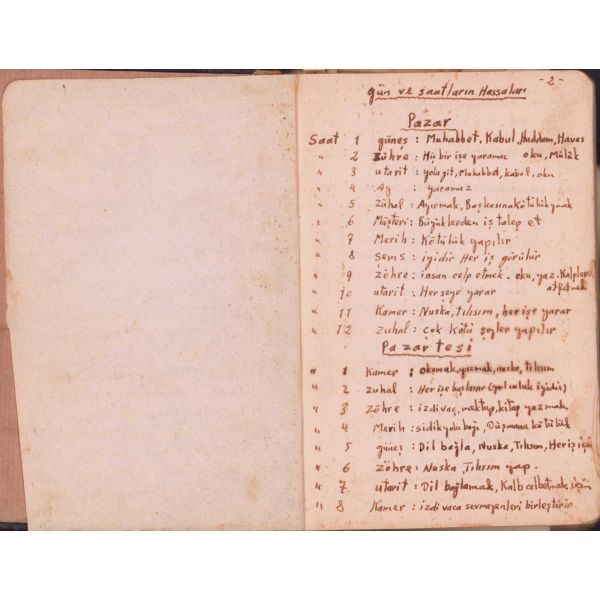 -2-
Gün ve saatların Hassaları
Pazar
Saat 1 güneş : Muhabbet, Kabul, Huddam, Havas
" 2 Zühre : Hiç bir işe yaramaz oku, Mülük
" 3 utarit : yola git, Muhabbet, kabul, oku
" 4 Ay : yaramaz
" 5 Zühal : Ayırmak, Başkasına kötülük ymak
" 6 Müşteri : Büyüklerden iş talep et
" 7 Merih : Kötülük yapılır
" 8 Şems : iyidir Her iş görülür
" 9 Zöhre : insan celp etmek. oku, yaz. Kalplere
" 10 utarit : Her şeye yarar
" 11 Kamer : Nuska, tılısım, her işe yarar
" 12 Zuhal : çok kötü şeyler yapılır
Pazartesi
" 1 Kamer : okumak, yazmak, nuska, tılısım
" 2 Zuhal : Her işe başlanır (yolculuk iyidir)
" 3 Zöhre : izdivaç, mektup, kitap yazmak
" 4 Merih : sidik yolu bağı, Düşmana kötülük
" 5 güneş : Dil bağla, Nuska, Tılısım, Her iş için
" 6 Zöhre : Nuska Tılısım yap.
" 7 utarit : Dil bağlamak, Kalb celbetmek için
" 8 Kamer : izdivaca sevmeyenleri birleştirir